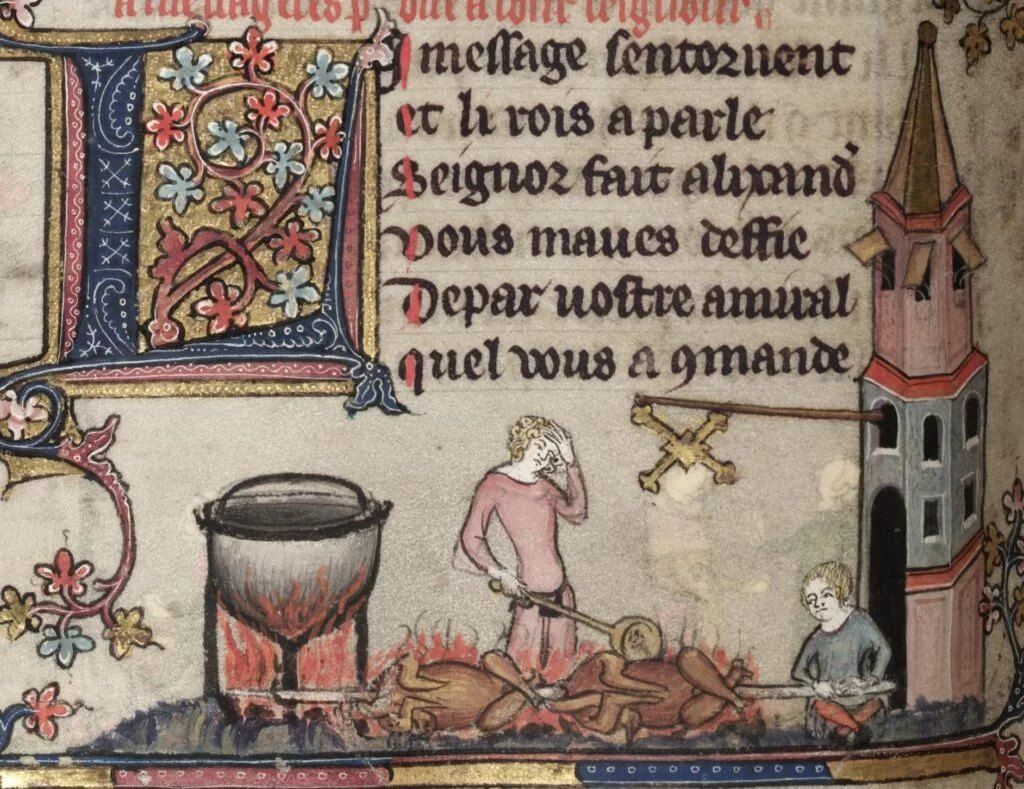 LI message sentornent
et li rois a parle
Seignor fait alixand̾
Vous maues deffie
Depar uostre amiral
quel vous a ꝯmande